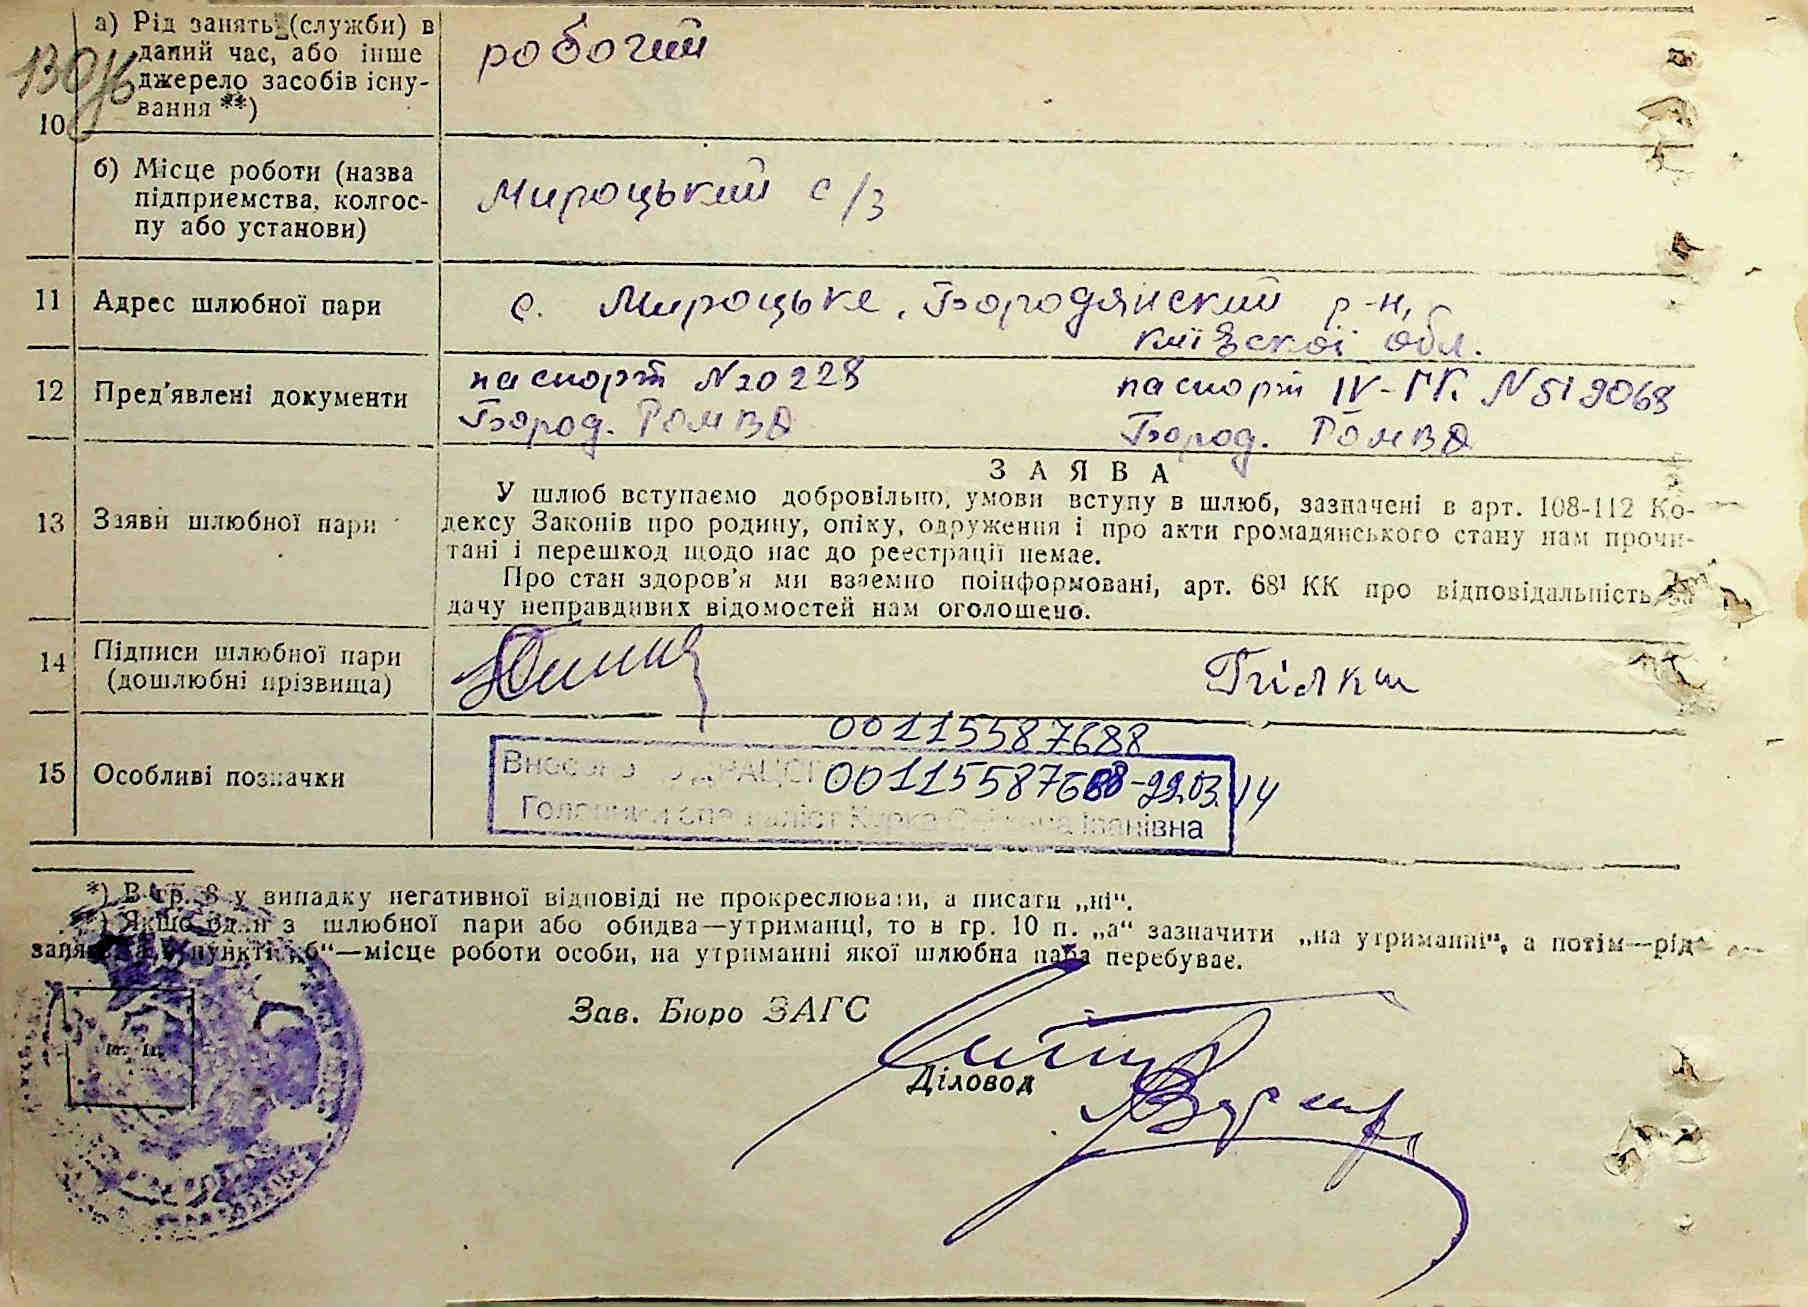 130/6
10
а) Рід занять (службн) в
даний час, або інше
джерело засобів існу-
вання **)
робочий
б) Місце роботи (назва
підприемства, колгос-
пу або установи)
Мироцький с/з
11 Адрес шлюбної пари
с. Мироцьке, Бородянский р-н,
київскої обл.
12 Пред'явлені документи
паспорт N 20228
Бород. РОМВД
паспорт IV-ГК N 519068
Бород. РОМВД
ЗАЯВА
13 Заяви шлюбної пари
У шлюб вступаємо добровільно, умови вступу в шлюб, зазначені в арт. 108-112 Ко-
дексу Законів про родину, опіку, одруження і про акти громадянського стану нам прочи-
тані і перешкод щодо нас до реестрації немає.
Про стан здоров'я ми взаемно поінформовані, арт. 68¹ КК про відповідальність за
дачу неправдивих відомостей нам оголошено.
14 Підписи шлюбної пари
(дошлюбні прізвища)
15 Особливі позначки
00115587688
00115587688-22.03.14
Головний спеціаліст Іванівна
*) В гр. 8 у випадку негативної відповіді не прокреслювати, а писати „ні“.
**) Якщо один з шлюбної пари або обидва—утриманці, то в гр. 10 п. „а“ зазначити „на утриманні“, а потім—рід
занять, а в пункті „б“—місце роботи особи, на утриманні якої шлюбна пара перебуває.
Зав. Бюро ЗАГС
Діловод